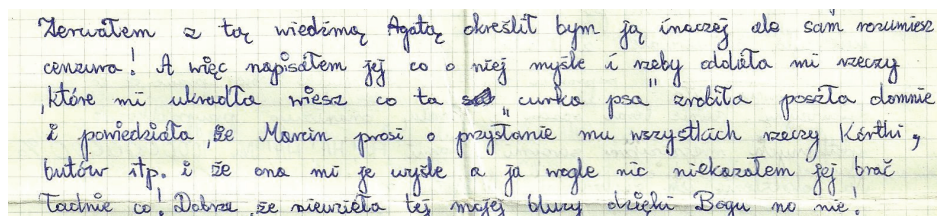 Zerwałem z tą wiedźmą Agatą określił bym ją inaczej ale sam rozumiesz
cenzura! A więc napisałem jej co o niej myśle i rzeby oddała mi rzeczy
,które mi ukradła wiesz co ta "curka psa" zrobiła poszła domnie
i powiedziała ,że Marcin prosi o przysłanie mu wszystkich rzeczy Kórtki,
butów itp. i że ona mi je wyśle a ja wogle nic niekazałem jej brać
Ładnie co! Dobrze ,że niewzieła tej mojej bluzy dzięki Bogu no nie!